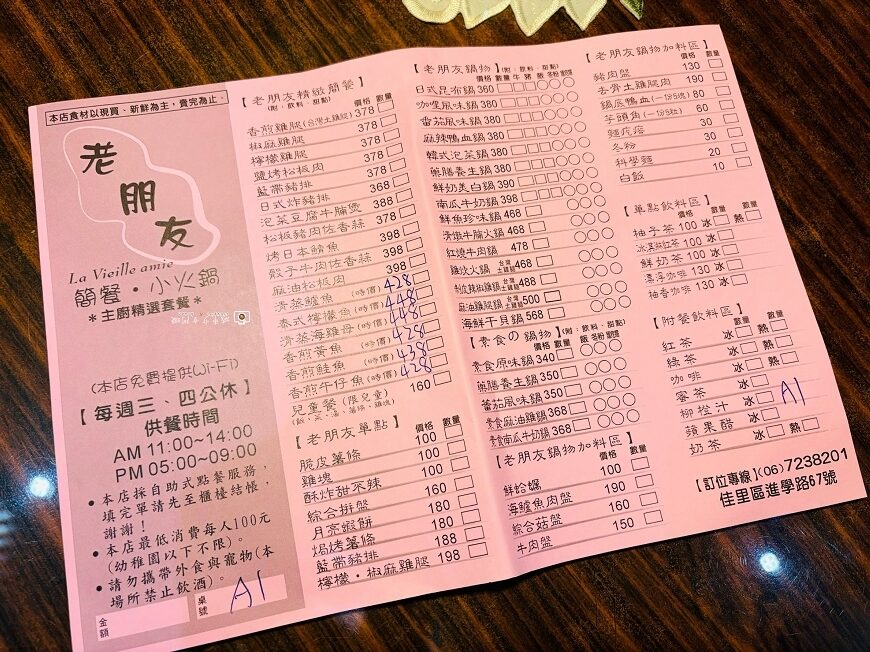 本店食材以現買、新鮮為主，賣完為止。
老朋友
La Vieille amie
簡餐·小火鍋
＊主廚精選套餐＊
(本店免費提供Wi-Fi)
【每週三、四公休】
供餐時間
AM 11:00~14:00
PM 05:00~09:00
•本店採自助式點餐服務，
填完單請先至櫃檯結帳，
謝謝！
•本店最低消費每人100元
(幼稚園以下不限)。
•請勿攜帶外食與寵物(本
場所禁止飲酒)。
金額
桌號 A1
【老朋友精緻簡餐】
(附：飲料·甜點) 價格 數量
香煎雞腿(台灣土雞腿) 378
椒麻雞腿 378
檸檬雞腿 378
鹽烤松板肉 378
藍帶豬排 378
日式炸豬排 368
泡菜豆腐牛腩煲 388
松板豬肉佐香蒜 378
烤日本鯖魚 398
骰子牛肉佐香蒜 398
麻油松板肉 398
清蒸鱸魚 (時價) 428
泰式檸檬魚 (時價) 448
清蒸海雞母 (時價) 448
香煎黃魚 (時價) 428
香煎鮭魚 (時價) 438
香煎午仔魚 (時價) 428
兒童餐 (限兒童) 160
【老朋友單點】 價格 數量
脆皮薯條 100
雞塊 100
酥炸甜不辣 100
綜合拼盤 160
月亮蝦餅 180
焗烤薯條 180
藍帶豬排 188
檸檬·椒麻雞腿 198
【老朋友鍋物】(附：飲料·甜點)
價格 數量 牛 豬 飯 冬粉
日式昆布鍋 360
咖哩風味鍋 380
番茄風味鍋 380
麻辣鴨血鍋 380
韓式泡菜鍋 380
藥膳養生鍋 380
鮮奶美白鍋 390
南瓜牛奶鍋 398
鮮魚珍味鍋 468
清燉牛腩火鍋 468
紅燒牛肉鍋 478
雞炊火鍋 台灣土雞腿 468
剝皮辣椒雞鍋 台灣土雞腿 488
麻油雞腿鍋 台灣土雞腿 500
海鮮干貝鍋 568
【素食の鍋物】(附：飲料·甜點)
價格 數量 飯 冬粉
素食原味鍋 340
藥膳養生鍋 350
蕃茄風味鍋 350
素食麻油雞鍋 368
素食南瓜牛奶鍋 368
【老朋友鍋物加料區】
價格 數量
鮮蛤蠣 100
海鱺魚肉盤 190
綜合菇盤 160
牛肉盤 150
【老朋友鍋物加料區】
價格 數量
豬肉盤 130
去骨土雞腿肉 190
鍋底鴨血(一份5塊) 80
芋頭角(一份5粒) 60
麵疙瘩 30
冬粉 30
科學麵 20
白飯 10
【單點飲料區】
價格 數量 數量
柚子茶 100 冰 熱
冰淇淋紅茶 100 冰
鮮奶茶 100 冰
漂浮咖啡 130 冰
柚香咖啡 130 冰
【附餐飲料區】
數量 數量
紅茶 冰 熱
綠茶 冰 熱
咖啡 冰 熱
蜜茶 冰
柳橙汁 冰 A1
蘋果醋 冰
奶茶 冰 熱
【訂位專線】(06)7238201
佳里區進學路67號